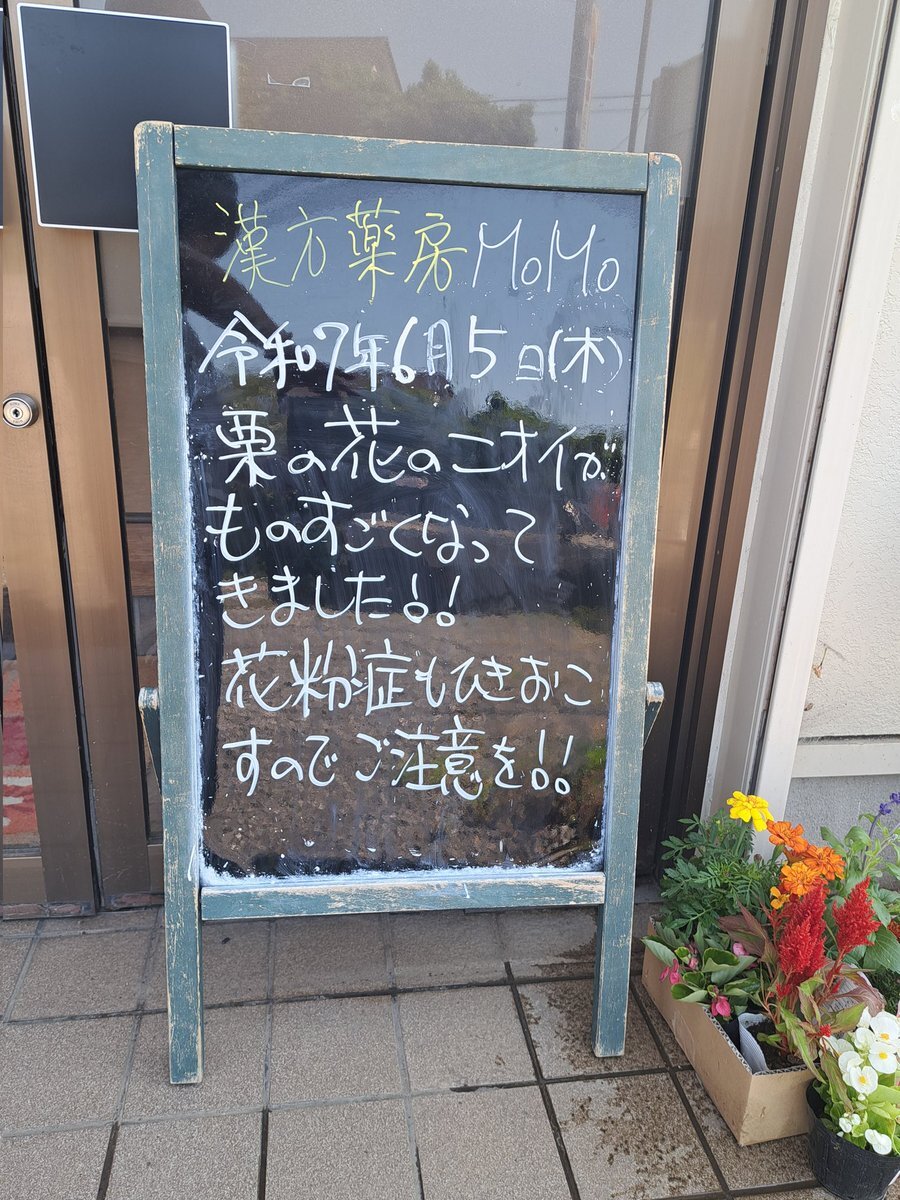 漢方薬房MoMo
令和7年6月5日(木)
栗の花のニオイが
ものすごくなって
きました!!
花粉症もひきおこ
すのでご注意を!!